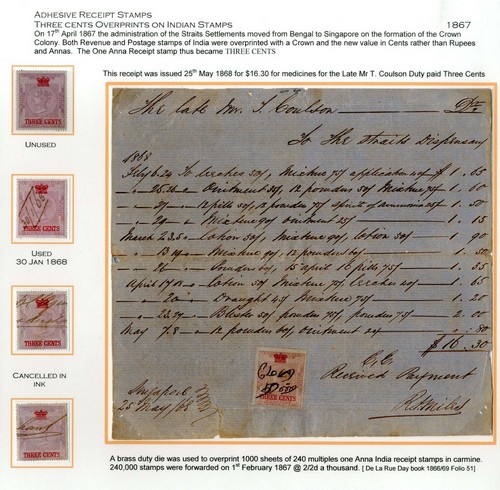 ADHESIVE RECEIPT STAMPS
THREE CENTS OVERPRINTS ON INDIAN STAMPS 1867
On 17th April 1867 the administration of the Straits Settlements moved from Bengal to Singapore on the formation of the Crown
Colony. Both Revenue and Postage stamps of India were overprinted with a Crown and the new value in Cents rather than Rupees
and Annas. The One Anna Receipt stamp thus became THREE CENTS
This receipt was issued 25th May 1868 for $16.30 for medicines for the Late Mr T. Coulson Duty paid Three Cents
THREE CENTS
UNUSED
THREE CENTS
USED
30 JAN 1868
THREE CENTS
CANCELLED IN
INK
THREE CENTS
The late Mr. T. Coulson Dr.
To The Straits Dispensary
1868
To leeches 50/, Mixture 75/ application 40/ $ 1.65
Ointment 50/, 12 powders 50/ Mixture 75/ 1.
12 pills 50/, 12 powders 75/ spirit of ammonia 25/ 1.50
Mixture 90/ ointment 25/ 1.15
March Lotion 50/, Mixture 90/, lotion 50/ 1.90
Mixture 90/, 12 powders
april 17 lotion 50/ Mixture 75/, leeches 40/ 1.65
Draught 45/ Mixture 75/ 1.20
Blister 50/ powders 75/, powders 75/ 2.00
May 7.8 12 powders, ointment .80
$16.30
E. E.
Received Payment
Singapore
25 May/68
THREE CENTS
A brass duty die was used to overprint 1000 sheets of 240 multiples one Anna India receipt stamps in carmine.
240,000 stamps were forwarded on 1st February 1867 @ 2/2d a thousand. [ De La Rue Day book 1866/69 Folio 51]